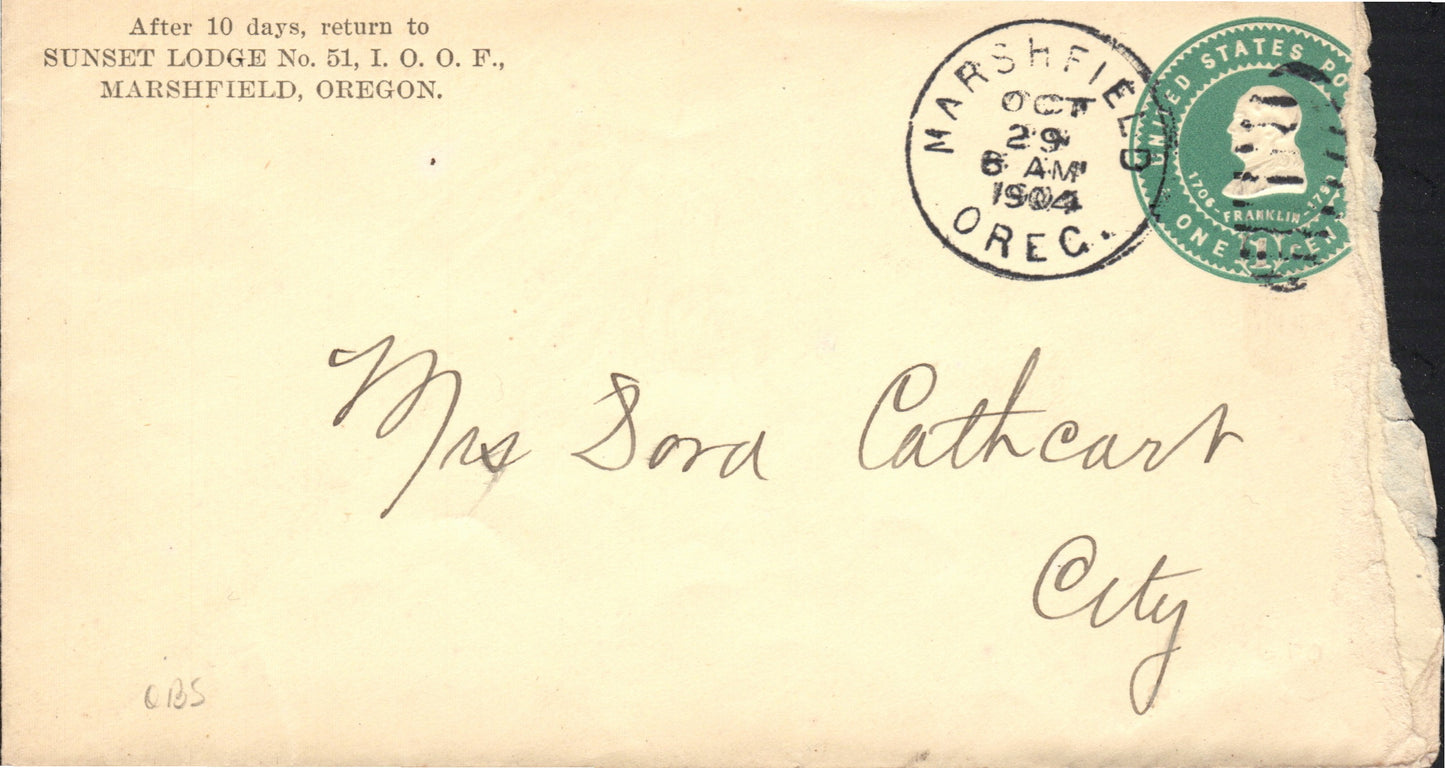 After 10 days, return to
SUNSET LODGE No. 51, I. O. O. F.,
MARSHFIELD, OREGON.
MARSHFIELD
OCT
29
6 AM
1904
OREG.
UNITED STATES PO
1706 - FRANKLIN - 179
ONE 1 CEN
Mrs Dora Cathcart
City
OBS